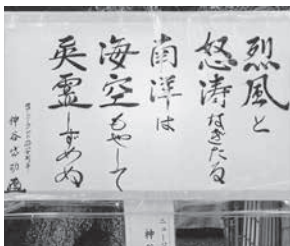 烈風と
怒涛なぎたる
南洋は
海空もやして
英霊しずめぬ
神谷
ニュー
神